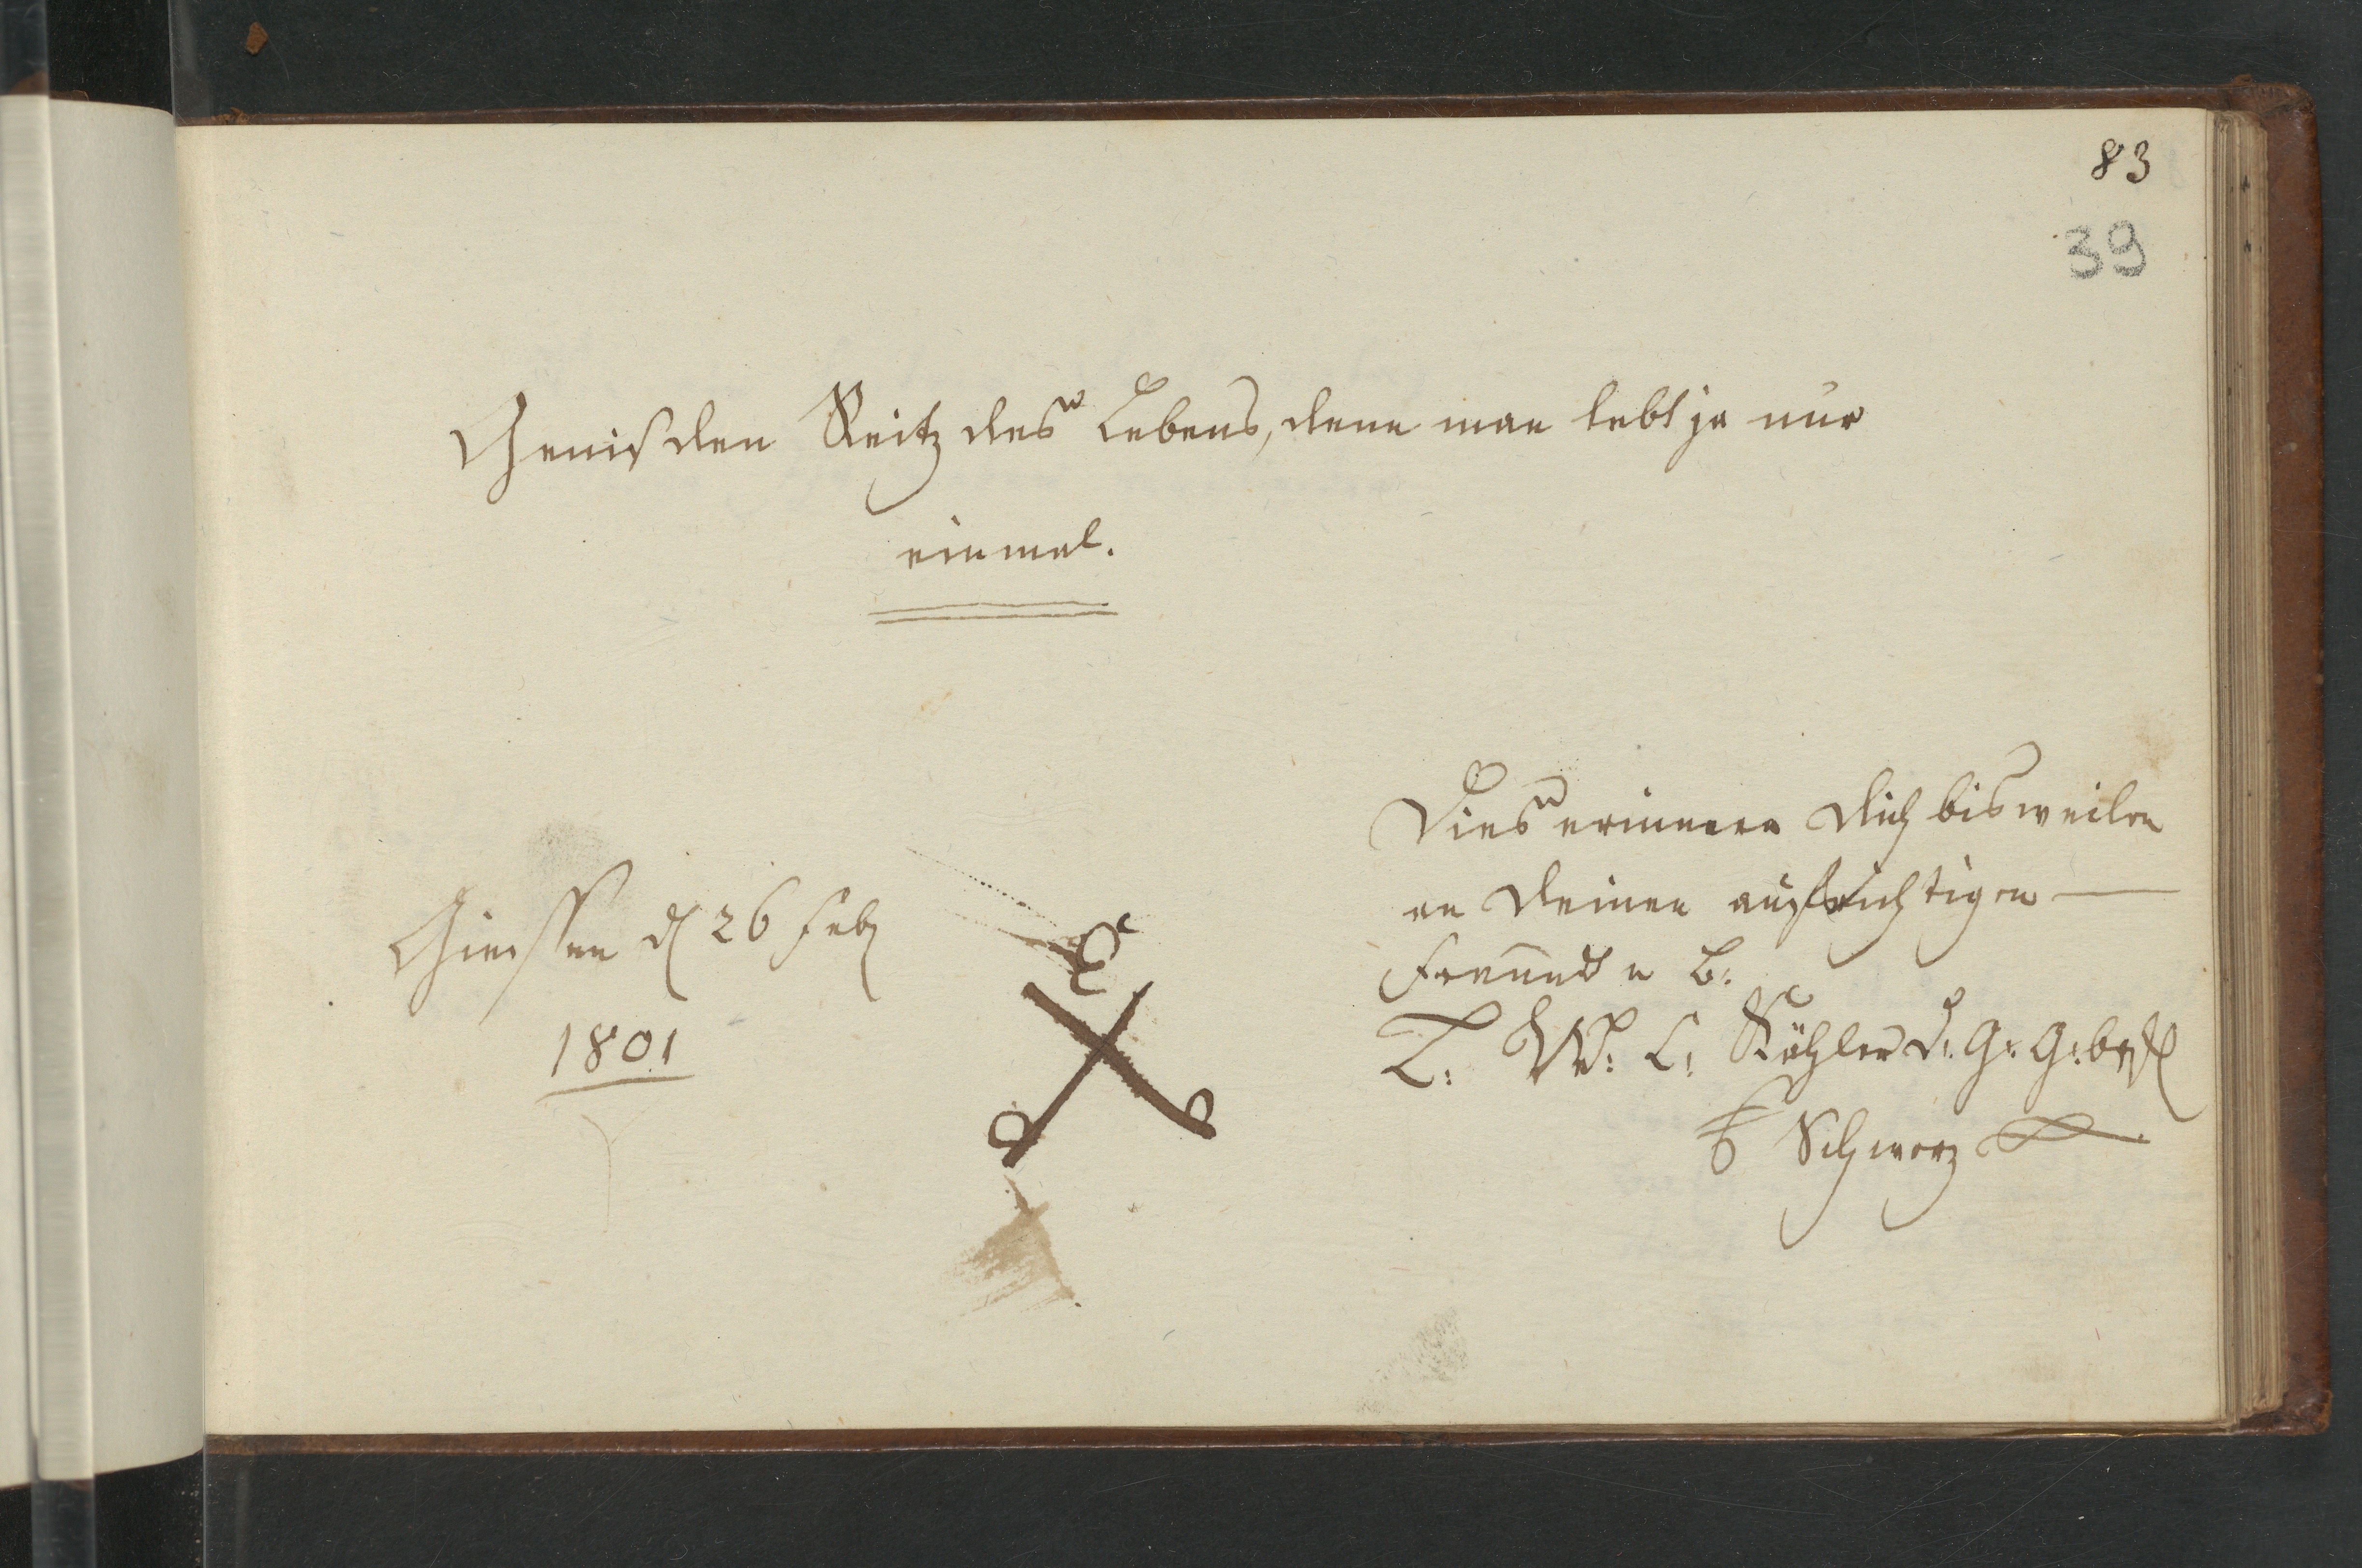 83
39
Geniß den Reitz des Lebens, denn man lebt ja nur
einmal.
Giessen d 26 Feb
1801
Dies erinnere Dich bisweilen
an Deinen aufrichtigen
Freund u B:
L: W: C: Köhler d: G: G: b:
Schwarz